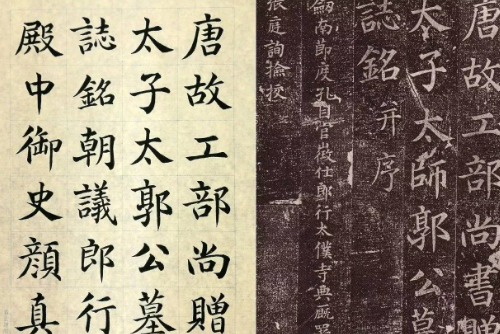 唐故工部尚贈
太子太郭公墓
誌銘朝議郎行
殿中御史顏真
唐故工部尚書贈
太子太師郭公墓
誌銘并序
劒南節度孔目官徵仕郎行太僕寺典厩署
張庭詢撿校